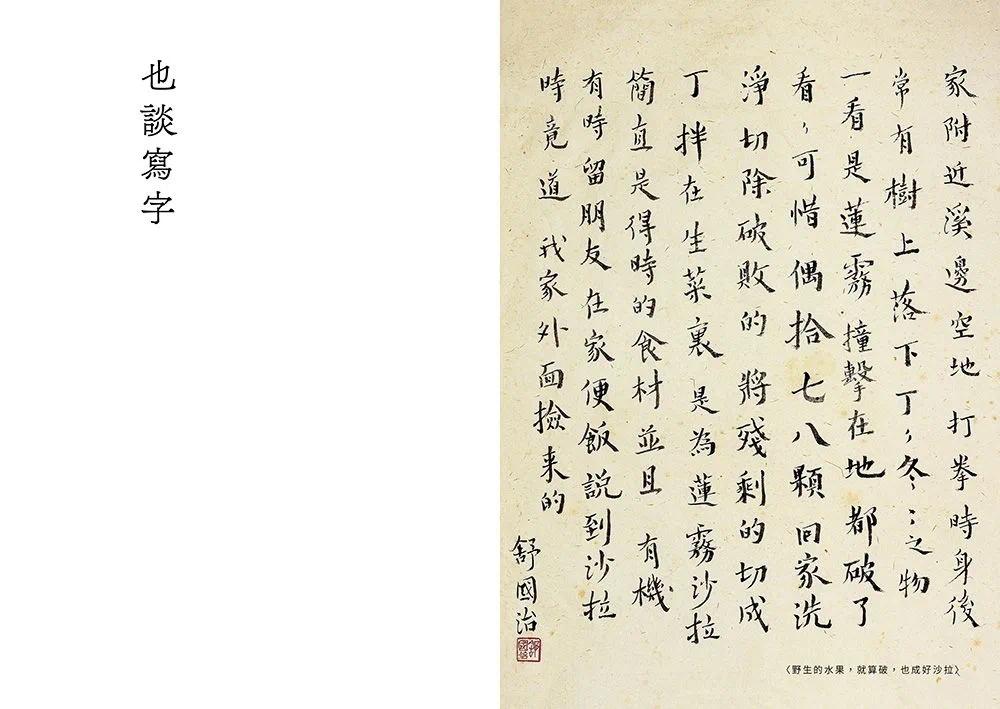 家附近溪邊空地 打拳時身後
常有樹上落下丁〻冬〻之物
一看是蓮霧 撞擊在地都破了
看〻可惜 偶拾七八顆回家洗
淨切除破敗的 將殘剩的切成
丁拌在生菜裏 是為蓮霧沙拉
簡直是得時的食材並且 有機
有時留朋友在家便飯説到沙拉
時竟道 我家外面撿来的
舒國治
〈野生的水果，就算破，也成好沙拉〉
也談寫字